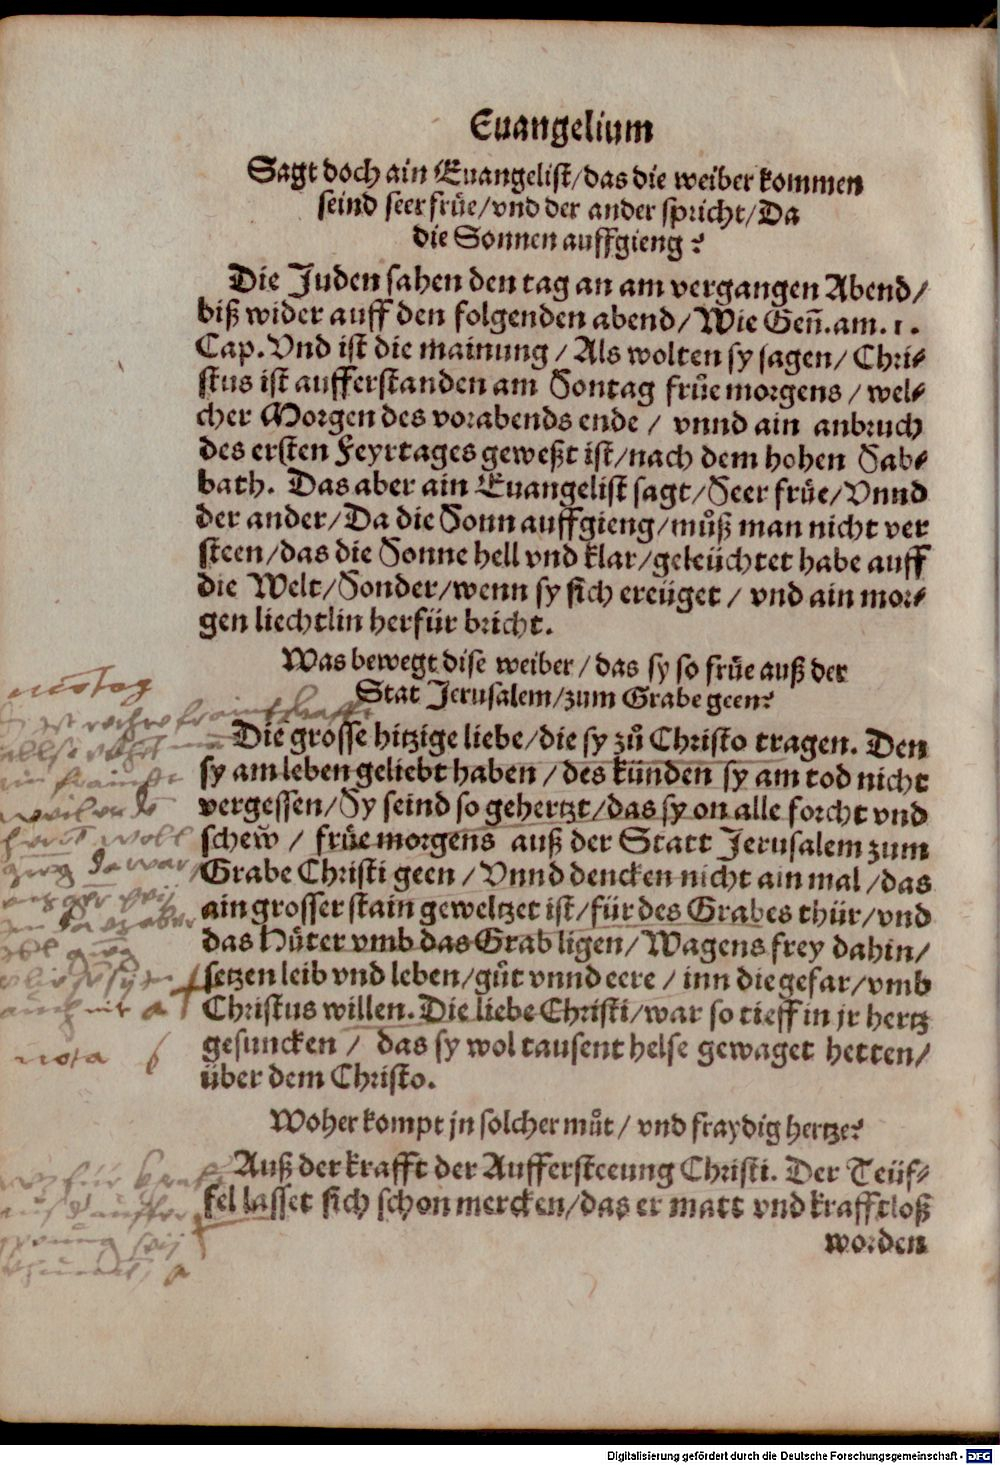 Euangelium
Sagt doch ain Euangelist/das die weiber kommen
seind seer früe/vnd der ander spricht/Da
die Sonnen auffgieng?
Die Juden sahen den tag an am vergangen Abend/
biß wider auff den folgenden abend/Wie Geñ.am.1.
Cap.Vnd ist die mainung/Als wolten sy sagen/Chri-
stus ist aufferstanden am Sontag früe morgens/wel-
cher Morgen des vorabends ende/vnnd ain anbruch
des ersten Feyrtages geweßt ist/nach dem hohen Sab-
bath. Das aber ain Euangelist sagt/Seer früe/Vnnd
der ander/Da die Sonn auffgieng/můß man nicht ver
steen/das die Sonne hell vnd klar/geleüchtet habe auff
die Welt/Sonder/wenn sy sich ereüget/vnd ain mor-
gen liechtlin herfür bricht.
Was bewegt dise weiber/das sy so früe auß der
Stat Jerusalem/zum Grabe geen?
Die grosse hitzige liebe/die sy zů Christo tragen. Den
sy am leben geliebt haben/des künden sy am tod nicht
vergessen/Sy seind so gehertzt/das sy on alle forcht vnd
schew̃/früe morgens auß der Statt Jerusalem zum
Grabe Christi geen/Vnnd dencken nicht ain mal/das
ain grosser stain geweltzet ist/für des Grabes thür/vnd
das Hüter vmb das Grab ligen/Wagens frey dahin/
setzen leib vnd leben/gůt vnnd eere/inn die gefar/vmb
Christus willen. Die liebe Christi/war so tieff in jr hertz
gesuncken/das sy wol tausent helse gewaget hetten/
über dem Christo.
nota
Woher kompt jn solcher můt/vnd fraydig hertze?
Auß der krafft der Aufferstceung Christi. Der Teüf-
fel lasset sich schon mercken/das er matt vnd krafftloß
worden
Digitalisierung gefördert durch die Deutsche Forschungsgemeinschaft - DFG